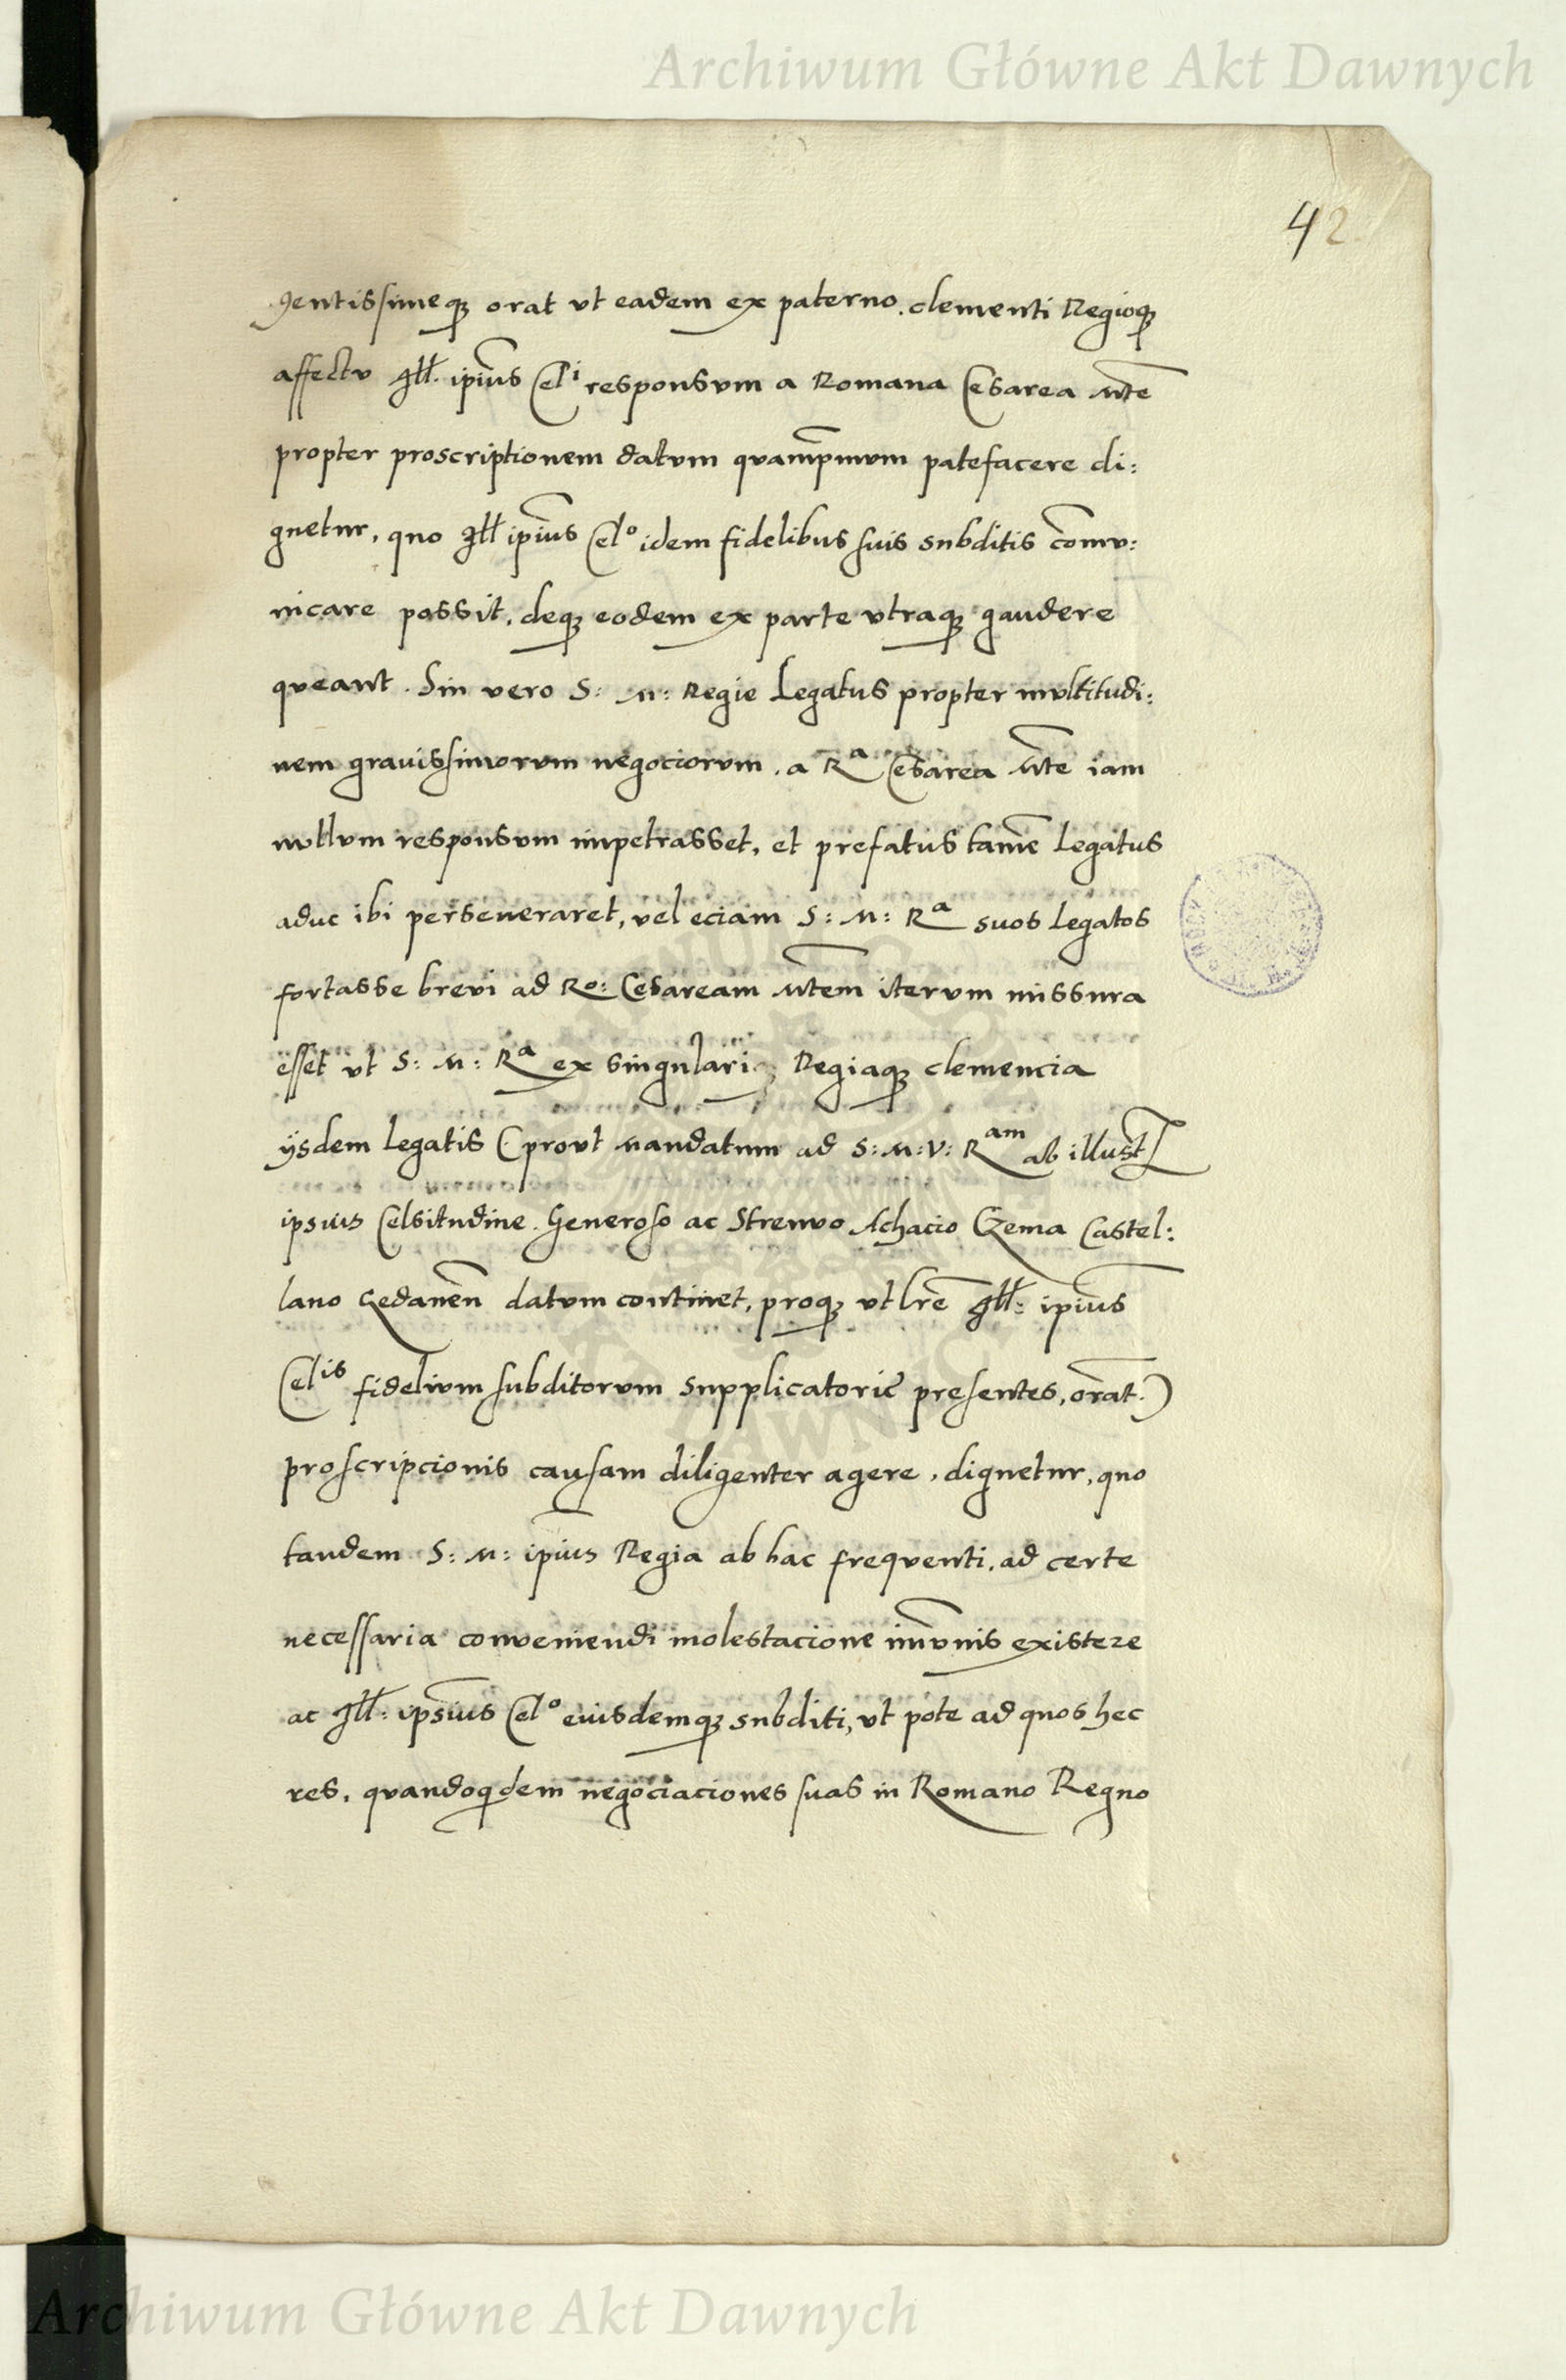 Archiwum Główne Akt Dawnych
42
gentissimeq₃ orat vt eadem ex paterno. clementi Regioq₃
affectu Ill. ipius Cel^i responsum a Romana Cesarea Mte
propter proscriptionem datum quamprimum patefacere di:
gnetur, quo Ill ipius Cel^o idem fidelibus suis subditis comu:
nicare possit, deq₃ eodem ex parte vtraq₃ gaudere
queant. Sin vero S: M: Regie Legatus propter multitudi:
nem grauissimorum negociorum, a R^a Cesarea Mte iam
nullum responsum impetrasset, et prefatus tame Legatus
aduc ibi perseueraret, vel eciam S: M: R^a suos Legatos
fortasse brevi ad Ro: Cesaream Mtem iterum missura
esset vt S: M: R^a ex singulari Regiaq₃ clemencia
ijsdem Legatis (prout mandatum ad S: M: V: R^am ab illust
ipsius Celsitudine. Generoso ac Strenuo Achacio Czema Castel:
lano Gedanen datum continet, proq₃ vt lre Ill: ipius
Cel^is fidelium subditorum supplicatorie presentes, orat.)
proscripcionis causam diligenter agere, dignetur, quo
tandem S: M: ipius Regia ab hac frequenti, ad certe
necessaria conueniendi molestacione imunis existere
ac Ill: ipsius Cel^o eiusdemq₃ subditi, vt pote ad quos hec
res, quandoqdem negociaciones suas in Romano Regno
Archiwum Główne Akt Dawnych